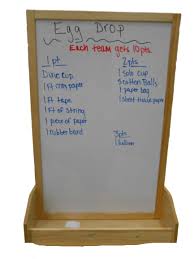 Egg Drop
Each team gets 10pts.
1 pt
Dixie Cup
1 ft wax paper
1 ft tape
1 ft of string
1 piece of paper
1 rubber band
2pts
1 solo cup
5 cotton Balls
1 paper bag
1 sheet tissue paper
3pts
1 balloon